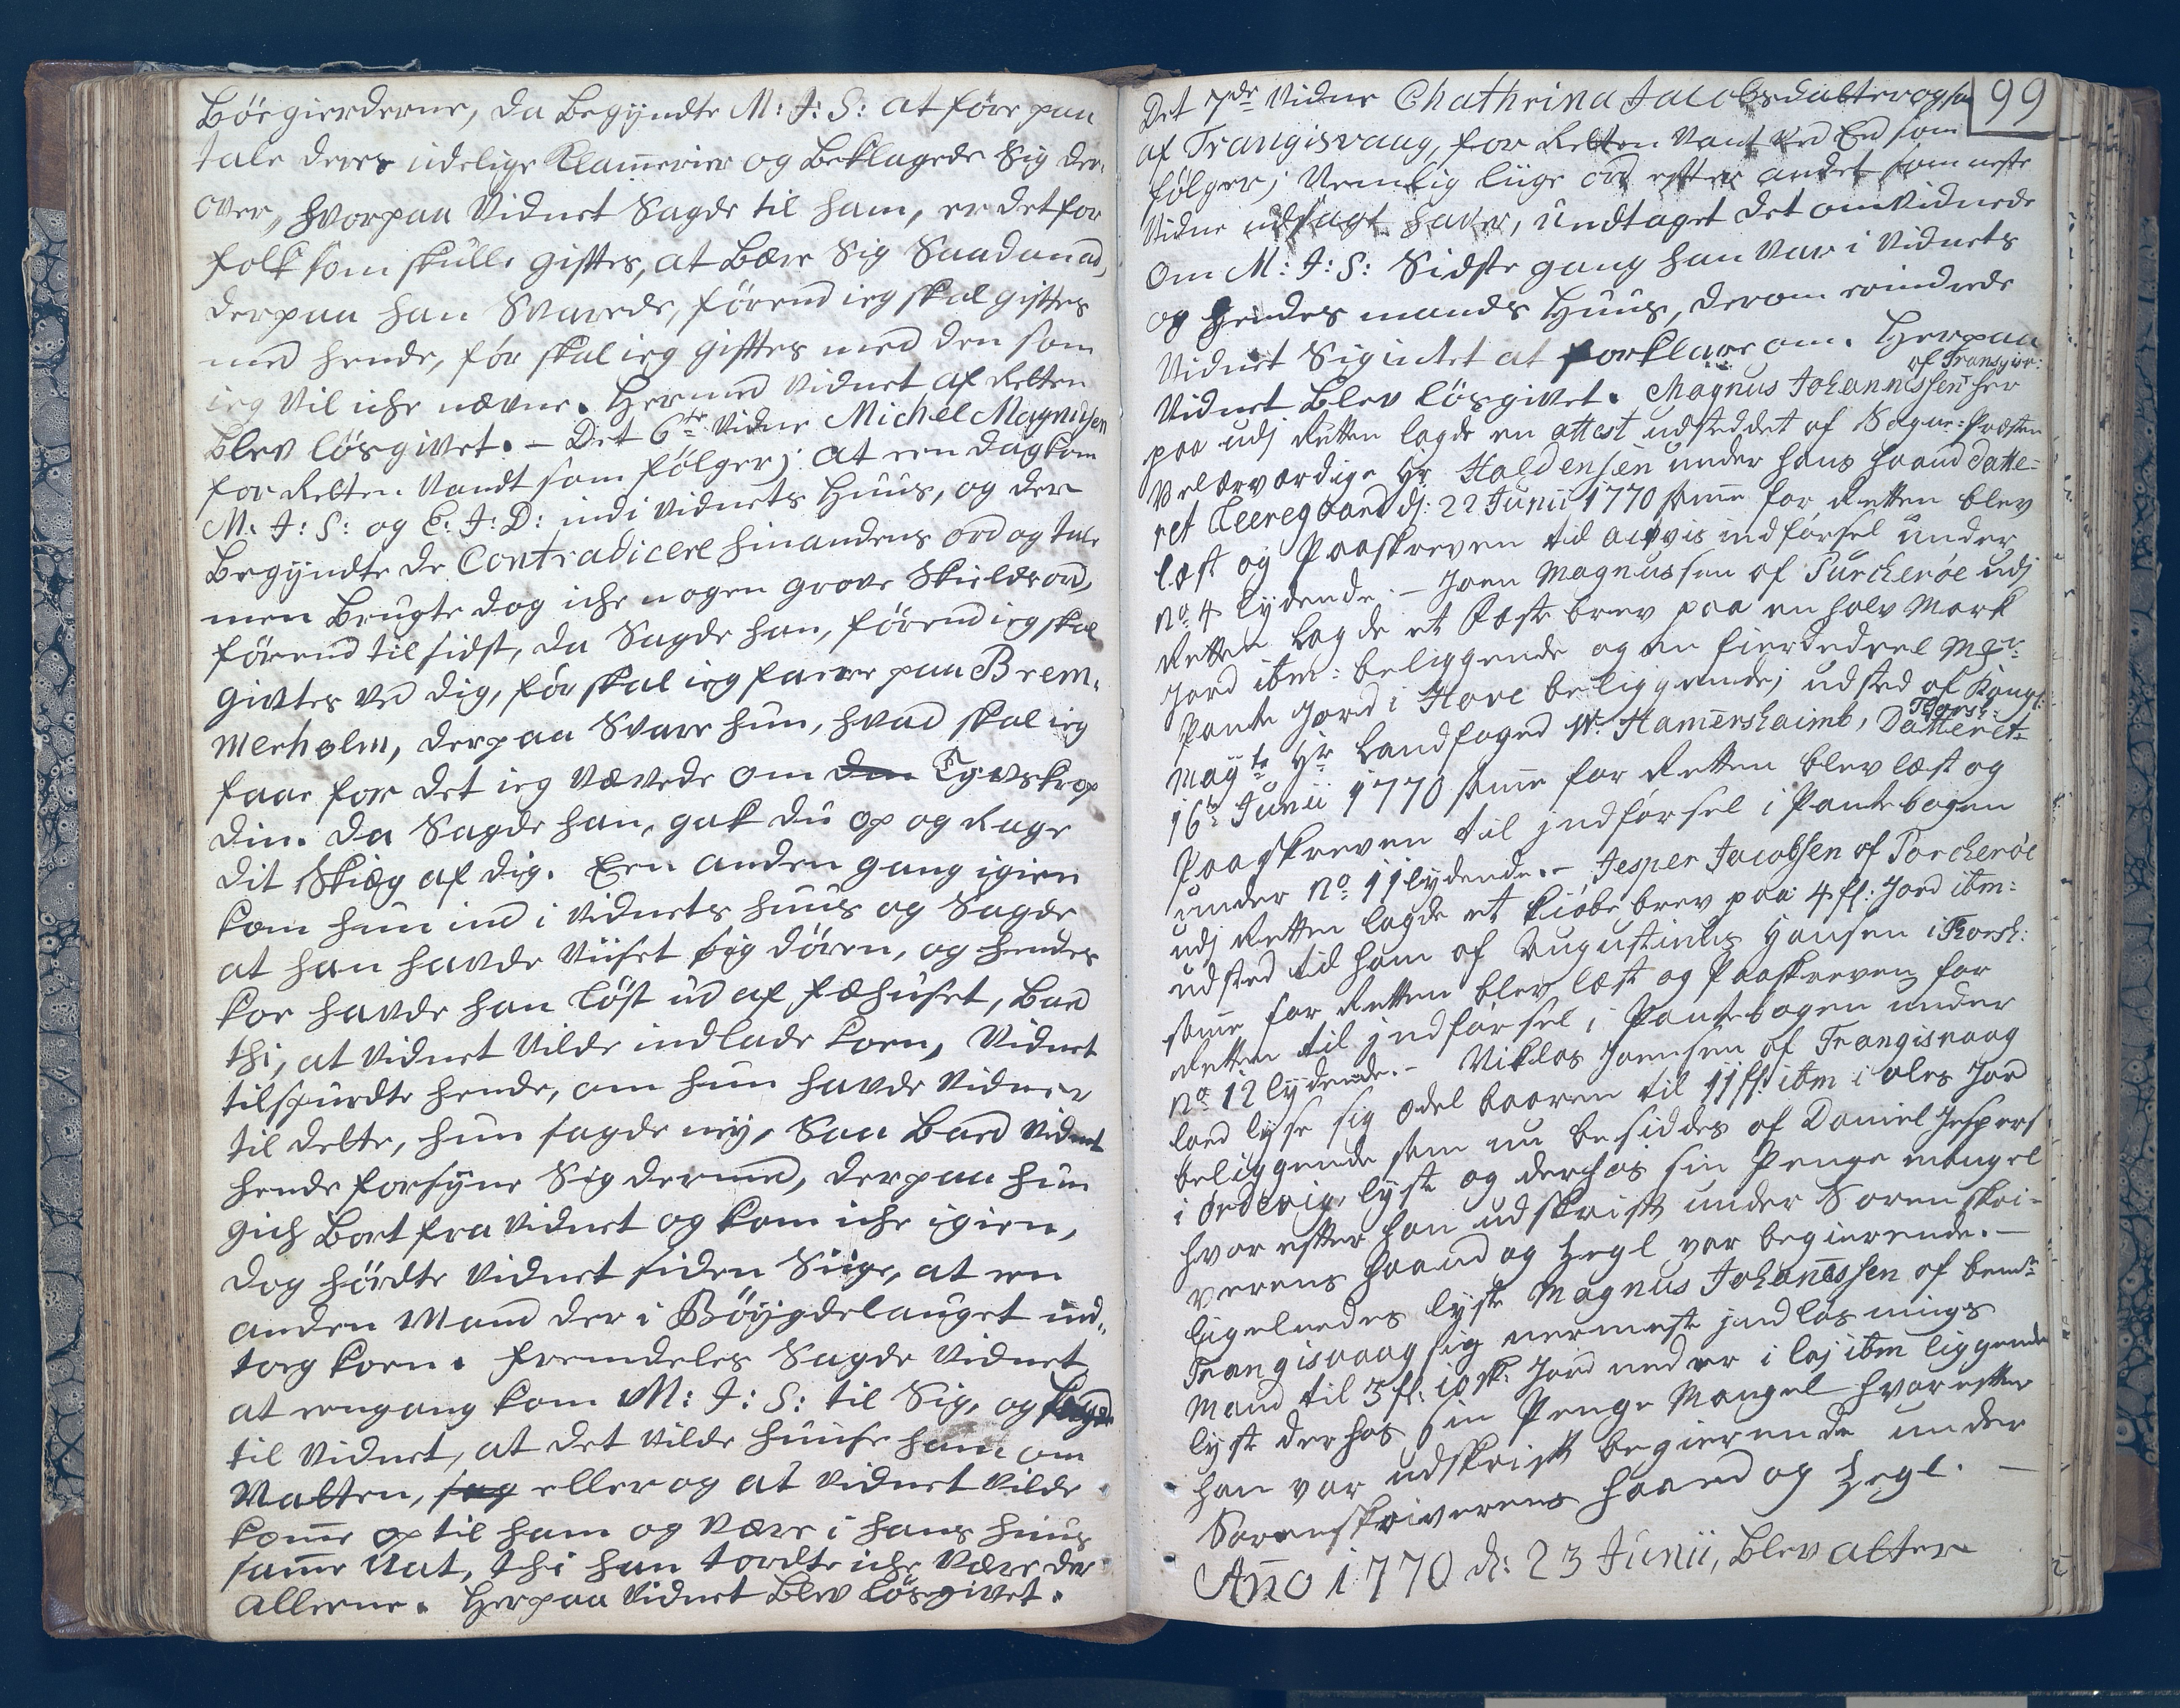 Böegierderne, da Begyndte M: J: S: at före paa
tale deres udelige Klam̄erier og Beklagede Sig der,
over, hvorpaa Vidnet Sagde til ham, er det for
folk som skulle gifftes, at Bære Sig Saadan ad,
derpaa han Svarede, förend ieg skal gifftes
med hende, för skal ieg gifftes med den som
ieg Vil iche nævne. Hermed Vidnet af Retten
Blev lösgivet. – Det 6te Vidne Michel Magnusen
for Retten Vandt som fölger; at een dag kom
M: J: S: og E: J: D: ind i Vidnets Huus, og der
Begyndte de Contradicere hinandens ord og tale
men Brugte dog iche nogen grove Skieldsord,
förend til sidst, da Sagde han, förend ieg skal
givtes ved dig, för skal ieg faere paa Brem,
merholm, derpaa Svare hun, hvad skal ieg
faae for det ieg Vævede om den Tyvskrop
din. Da Sagde han, gak du op og Rage
dit Skiæg af dig. Een anden gang igien
kom hun ind i Vidnets huus og Sagde
at han havde Viiset Sig dören, og hendes
koe havde han löst ud af fæhuset, Bad
thi, at Vidnet Vilde indlade koen, Vidnet
tilspurdte hende, om hun havde Vidner
til dette, hun sagde ney, Saa Bad Vidnet
hende forsyne Sig dermed, derpaa hun
gich Bort fra Vidnet og kom iche igien,
dog hördte Vidnet siden Siige, at een
anden Mand der i Böygdelauget ind,
tog koen. Fremdeles Sagde Vidnet
at eengang kom M: J: S: til Sig, og sagde
til Vidnet, at det Vilde huuse ham om
Natten, sag eller og at Vidnet Vilde
kom̄e op til ham og Være i hans huus
sam̄e Nat, thi han tordte iche Være der
alleene. Herpaa Vidnet Blev lösgivet.
99
Det 7de Vidne Chathrina Jacobsdatter ogsaa
af Trangisvaag, for Retten Vant ved Eed som
fölger; Nemlig liige ord effter andet som neste
Vidne udsagt haver, undtaget det omvidnede
om M: J: S: Sidste gang han Var i Vidnets
og hendes mands Huus, derom erindrede
Vidnet Sig intet at forklare om. Herpaa
Vidnet Blev lösgivet. Magnus Johannessen her
af Trangisv:
paa udj Retten lagde en attest udsteddet af Sogne-Præsten
Velærværdige Hr Haldensen under hans haand datte=
ret dj: 22 Junii 1770 sam̄e for Retten blev
læst og Paaskreven til indförsel under
No 4 lydende. – Joen Magnussen af Purcheröe udj
Retten lagde et Fæste brev paa en halv Mark
Jord ibm: beliggende og en fierdedeel Mark
Pante Jord i Hove beliggende; udsted af Kongl:
Mayts Hr Landfoged Wr Ham̄ershaimb, Datteret
Thorsh:
16te Junii 1770 sam̄e for Retten blev læst og
Paaskreven til jndförsel i Pantebogen
under No 11 lydende. – Jesper Jacobsen af Porcheröe
udj Retten lagde et kiöbe brev paa 4 fl: Jord ibm:
udsted til ham af Augustinus Hansen i Thorsh:
sam̄e for Retten blev læst og Paaskreven for
Retten til jndförsel i Pantebogen under
No 12 lydende. – Niklas Joensen af Trangisvaag
loed lyse sig odel baaren til 11 fl ibm i Jord
beliggende som nu besiddes af Daniel Jespers:
i Ördevig, lyste og derhos sin Penge mangel
hvor effter han udskrift under Sorenskri=
verens haand og Zegl var begierende. –
Ligeleedes lyste Magnus Johan̄essen af bemte
Trangisvaag sig nermeste jndlösnings
Mand til 3 fl: 10 sk: Jord neder i ibm liggende
lyste derhos sin Penge Mangel hvor effter
han var udskrift begierende under
Sorenskriverens haand og Zegl. –
An̄o 1770 d: 23 Junii, Blev atter